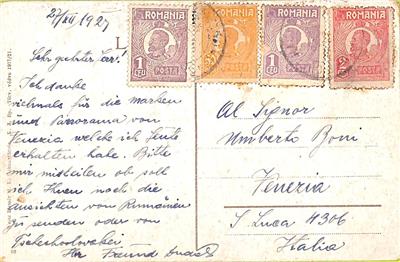 27/XII 1927
Sehr geehrter Herr.
Ich danke
vielmals für die marken
und Panorama von
Venezia welche ich heute
erhalten habe. Bitte
mir mitteilen ob soll
ich Ihnen noch die
ansichten von Rumänien
zu senden oder von
Tschechoslwakei
Ihr Freund
ROMANIA
1
LEU
POSTA
ROMANIA
POSTA
ROMANIA
1
LEU
POSTA
ROMANIA
2
POSTA
Al Signor
Umberto Boni
Venezia
S Luca 4306
Italia